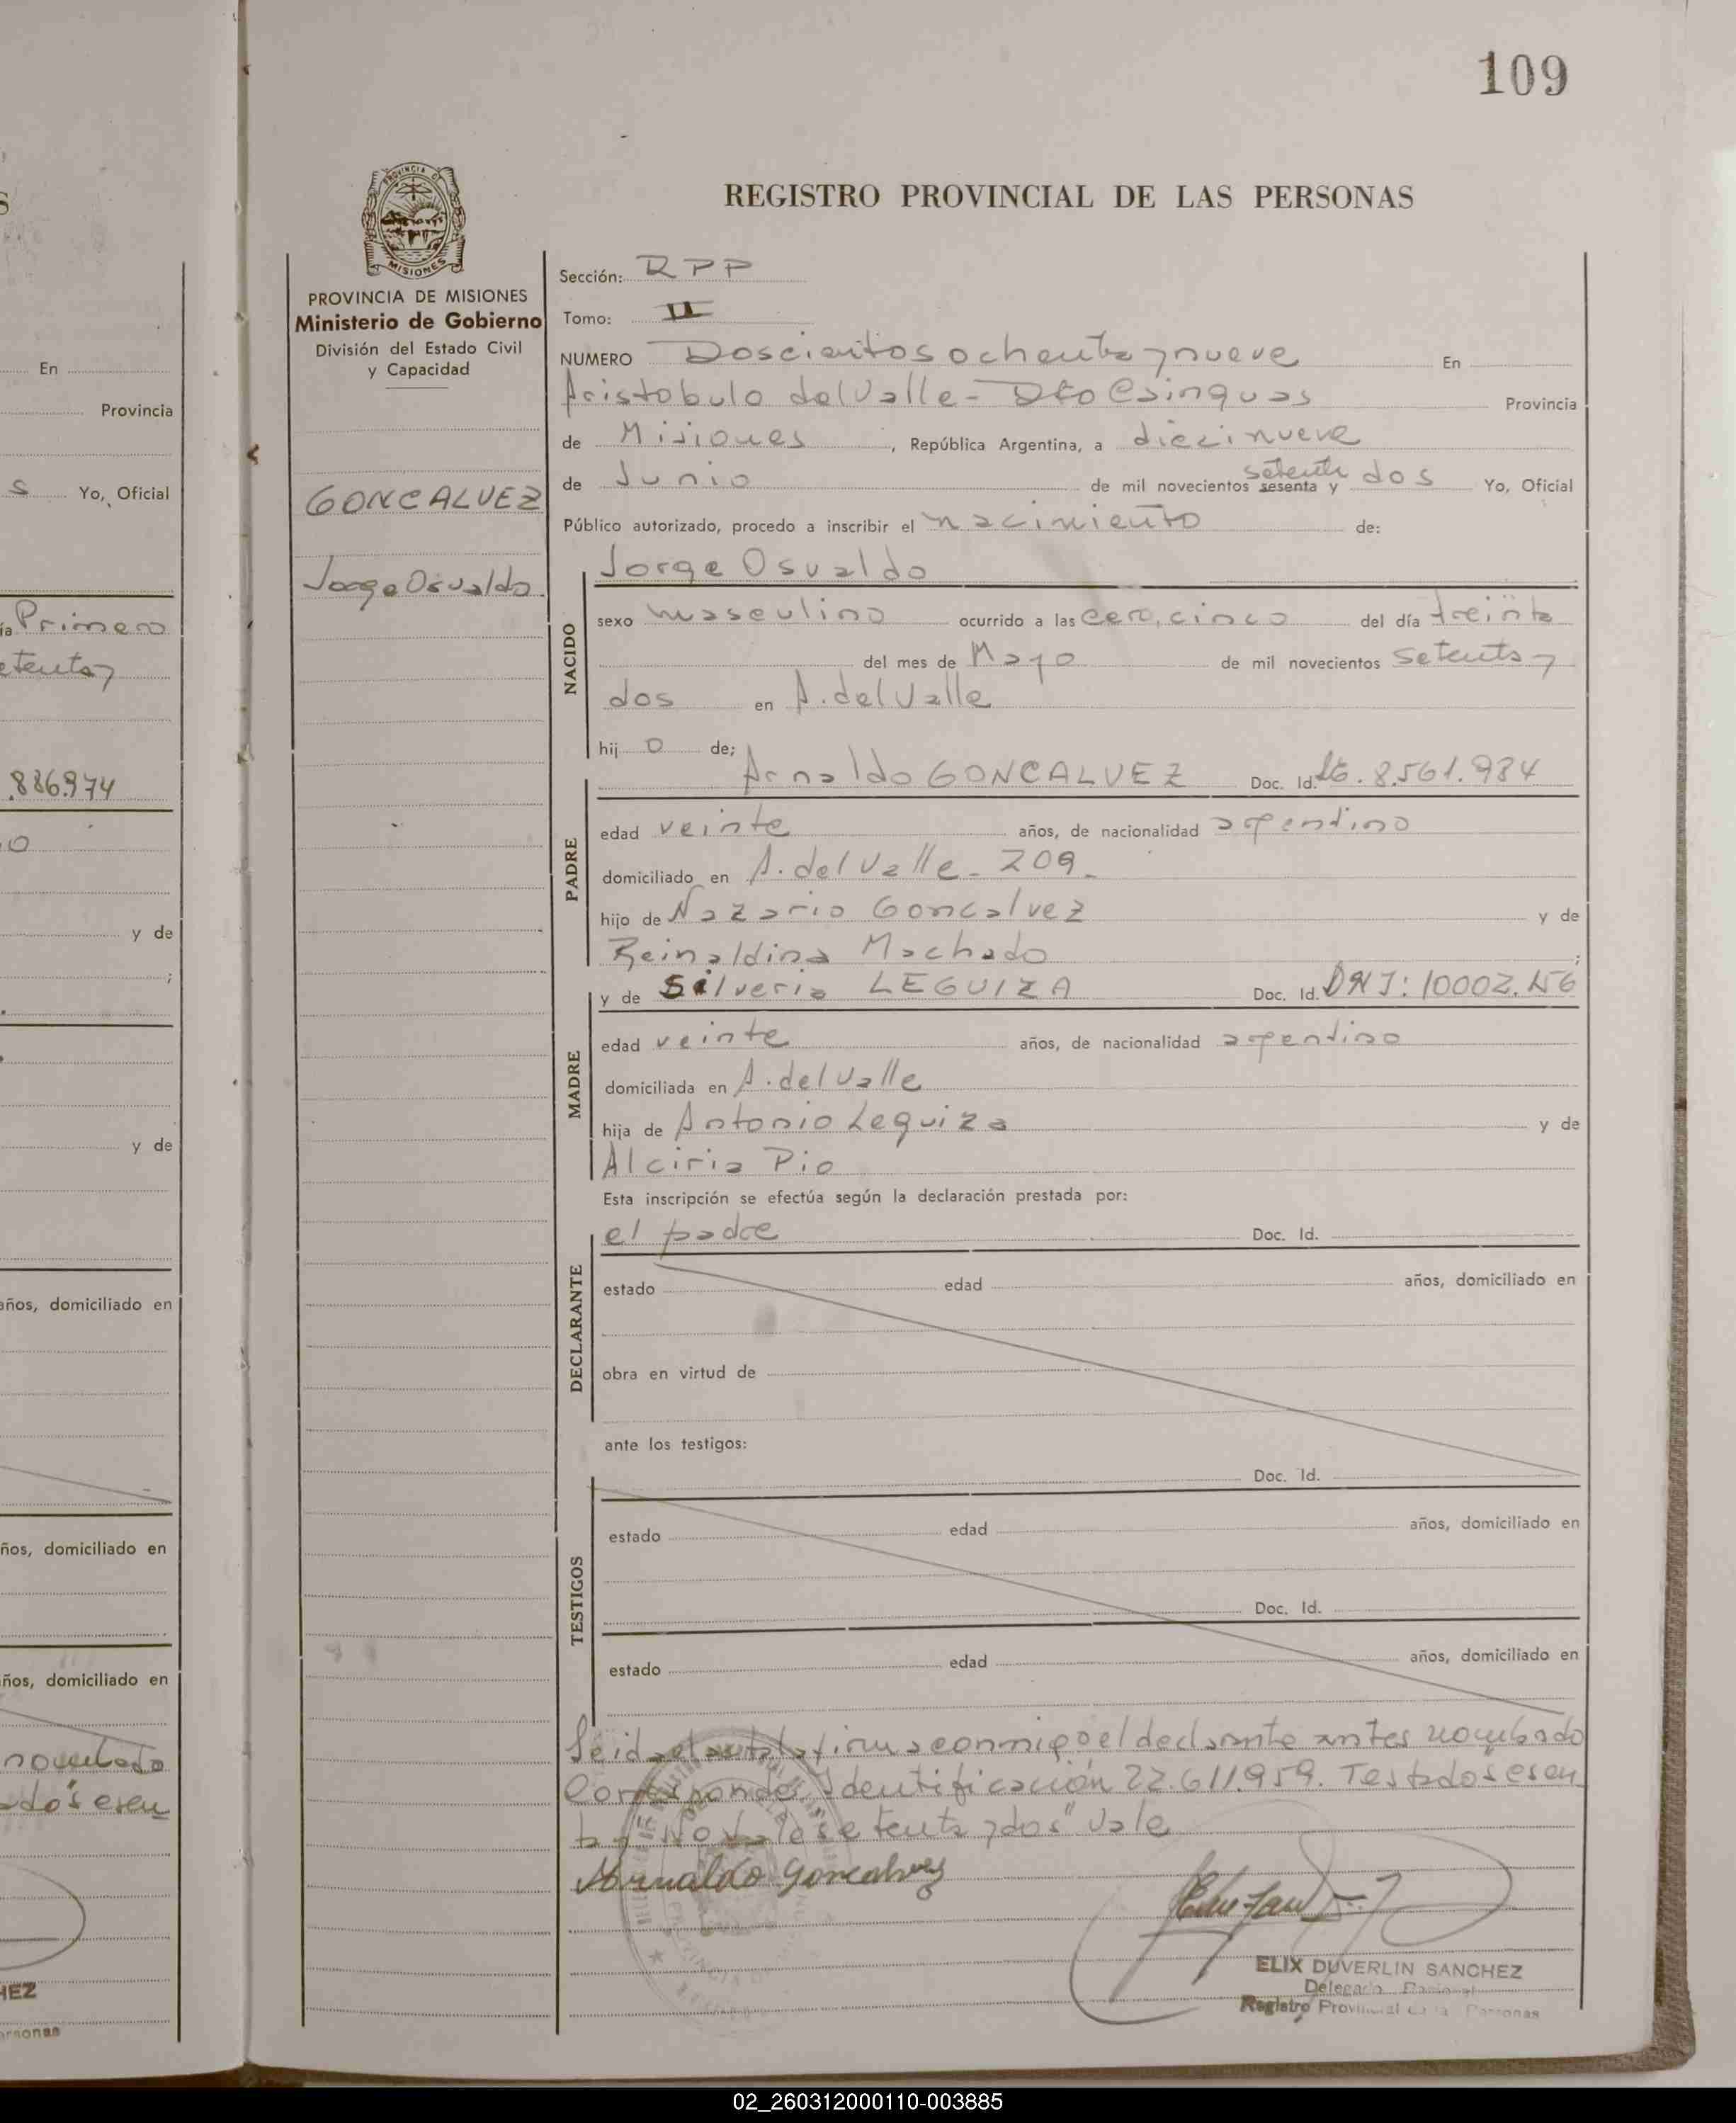 109
REGISTRO PROVINCIAL DE LAS PERSONAS
PROVINCIA DE MISIONES
Ministerio de Gobierno
División del Estado Civil
y Capacidad
GONCALVEZ
Jorge Osvaldo
Sección: RPP
Tomo: II
NUMERO Doscientos ochenta y nueve En
Aristobulo del Valle - Dto Cainguas Provincia
de Misiones, República Argentina, a diecinueve
setenta
de Junio de mil novecientos sesenta y dos Yo, Oficial
Público autorizado, procedo a inscribir el nacimiento de:
NACIDO
Jorge Osvaldo
sexo masculino ocurrido a las cero, cinco del día treinta
del mes de Mayo de mil novecientos setenta y
dos en A. del Valle
hij o de;
PADRE
Arnaldo GONCALVEZ Doc. Id. 8.561.984
edad veinte años, de nacionalidad argentino
domiciliado en A. del Valle - 209 -
hijo de Nazario Goncalvez y de
Reinaldina Machado ;
MADRE
y de Silveria LEGUIZA Doc. Id. DNI: 10002.156
edad veinte años, de nacionalidad argentino
domiciliada en A. del Valle
hija de Antonio Leguiza y de
Alciria Pio
Esta inscripción se efectúa según la declaración prestada por:
DECLARANTE
el padre Doc. Id.
estado edad años, domiciliado en
obra en virtud de
ante los testigos:
Doc. Id.
TESTIGOS
estado edad años, domiciliado en
Doc. Id.
estado edad años, domiciliado en
Leida el acta la firma conmigo el declarante antes nombrado
Corresponde Identificación 22.611.959. Testado sesen
ta y No Vale setenta y dos" Vale
Arnaldo Goncalvez
ELIX DUVERLIN SANCHEZ
Registro Provincial de la Personas
En
Provincia
s Yo, Oficial
ía Primero
etenta y
.886.974
o
y de
;
y de
años, domiciliado en
ños, domiciliado en
ños, domiciliado en
nombrado
ado sesen
HEZ
ersonas
02_260312000110-003885